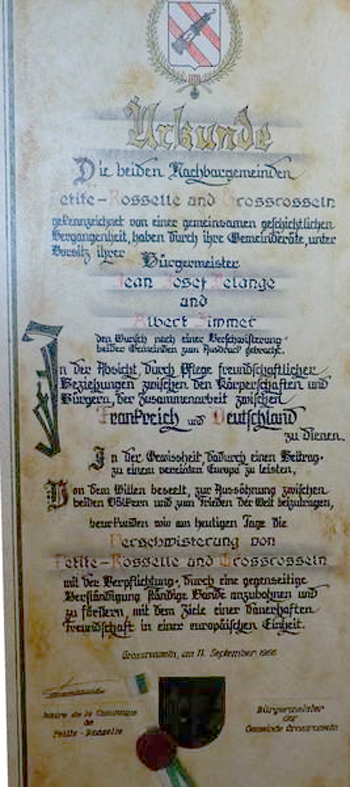 Urkunde
Die beiden Nachbargemeinden
Petite-Rosselle und Grossrosseln
gekennzeichnet von einer gemeinsamen geschichtlichen
Vergangenheit, haben durch ihre Gemeinderäte, unter
Vorsitz ihrer Bürgermeister
Jean Josef Felange
und
Albert Zimmer
den Wunsch nach einer Verschwisterung
beider Gemeinden zum Ausdruck gebracht.
In der Absicht, durch Pflege freundschaftlicher
Beziehungen zwischen den Körperschaften und
Bürgern, der Zusammenarbeit zwischen
Frankreich und Deutschland
zu dienen.
In der Gewissheit dadurch einen Beitrag
zu einem vereinten Europa zu leisten,
Von dem Willen beseelt, zur Aussöhnung zwischen
beiden Völkern und zum Frieden der Welt beizutragen,
beurkunden wir am heutigen Tage die
Verschwisterung von
Petite-Rosselle und Grossrosseln
mit der Verpflichtung, durch eine gegenseitige
Verständigung ständige Bande anzubahnen und
zu fördern, mit dem Ziele einer dauerhaften
Freundschaft in einer europäischen Einheit.
Grossrosseln, am 11. September
Maire de la Commune
de
Petite-Rosselle
Bürgermeister
der
Gemeinde Grossrosseln